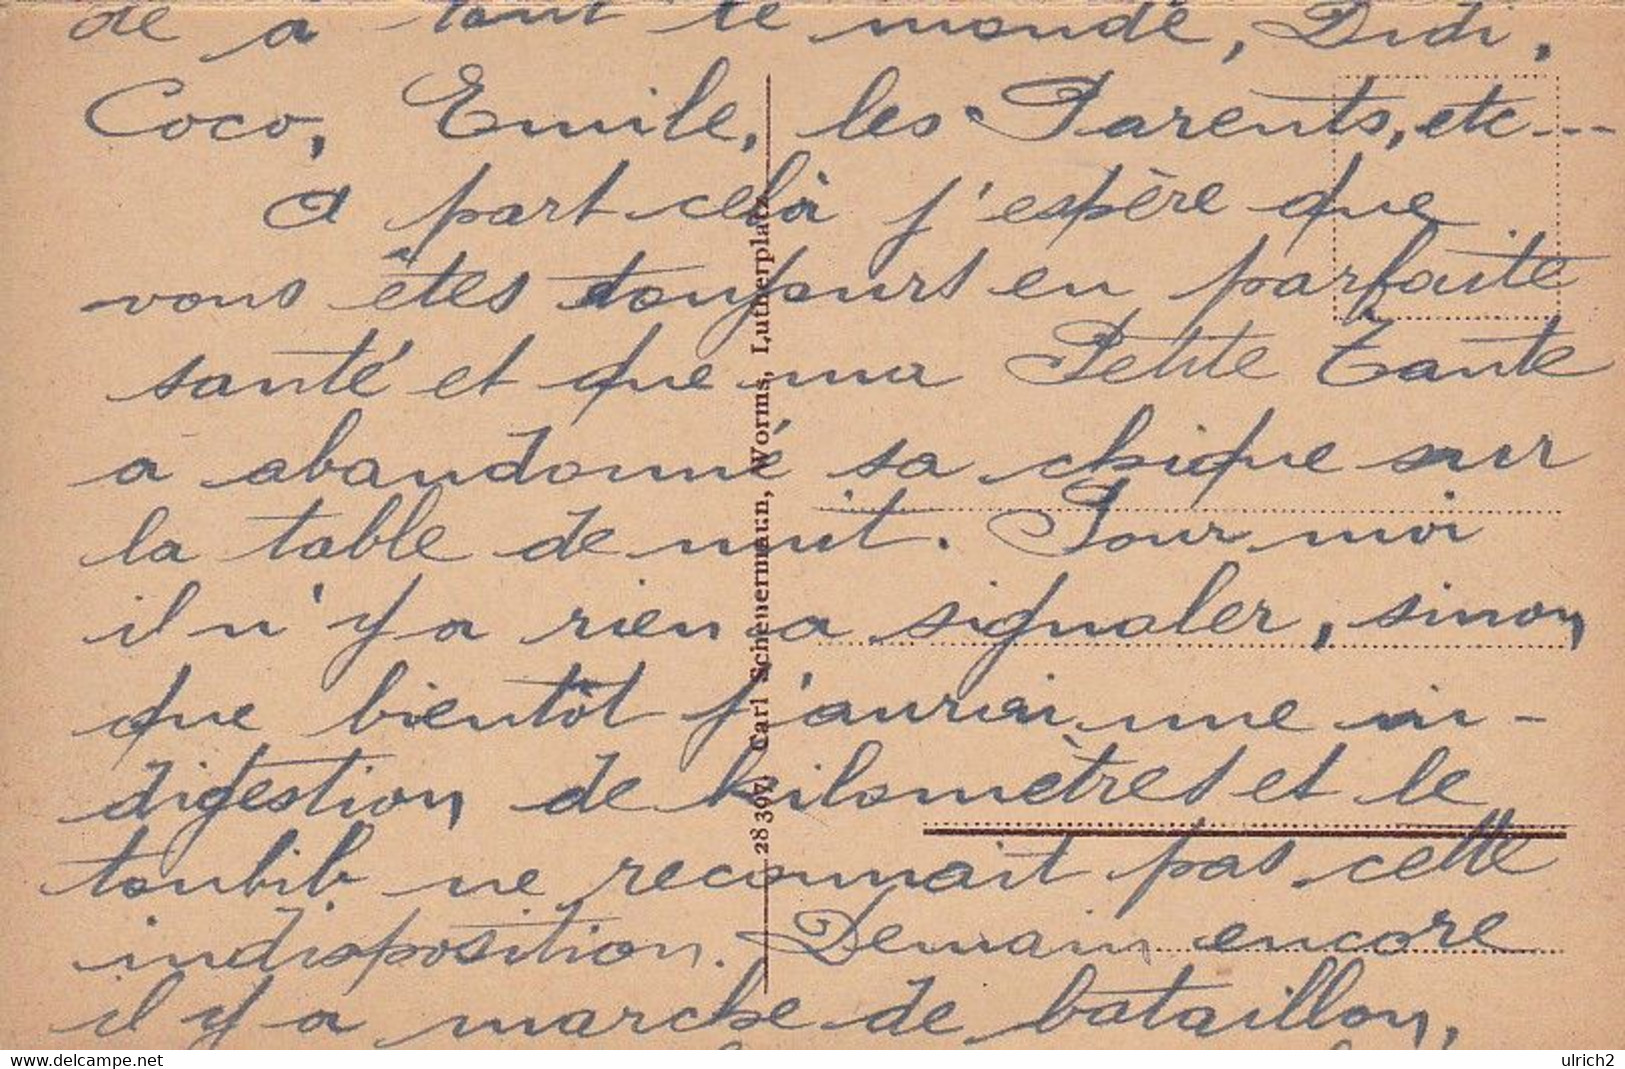 de a tout le monde, Didi,
Coco, Emile, les Parents, etc---
A part celà j'espère que
vous êtes toujours en parfaite
santé et que ma Petite Tante
a abandonné sa chique sur
la table de nuit. Pour moi
il n'y a rien a signaler, sinon
que bientôt j'aurai une in-
digestion de kilomètres et le
toubib ne reconnait pas cette
indisposition. Demain encore
il y a marche de bataillon,
28397 Carl Scheuermann, Worms, Lutherplatz
delcampe.net
ulrich2